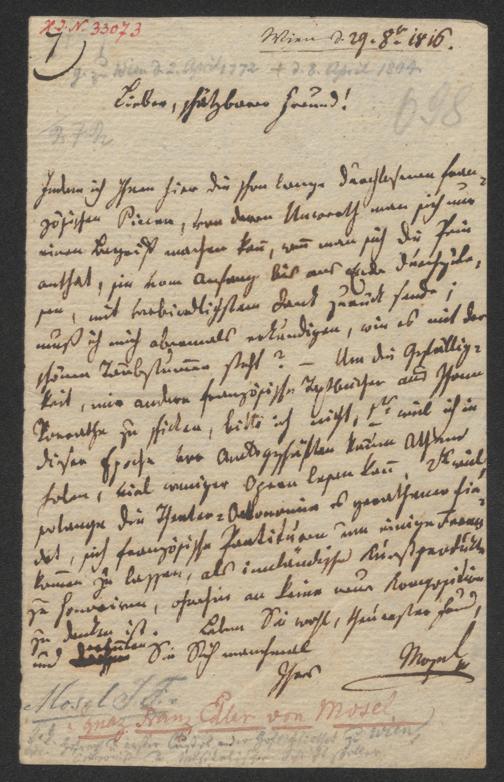 H. I. N. 33073
Wien d. 29. 8br 1816.
g. zu Wien d. 2. April 1772 + d. 8. April 1844
Lieber, schätzbarer Freund!
698
Indem ich Ihnen hier die schon lange durchlesenen fran-
zösischen Piecen, von deren Unwerth man sich nur
einen Begriff machen kann, wenn man sich die Pein
anthat, sie vom Anfang bis ans Ende durchzule-
sen, mit verbindlichstem Dank zurück sende;
muß ich mich abermals erkundigen, wie es mit der
schönen Taubstummen steht? – Um die Gefällig-
keit, mir andere französische Textbücher aus Ihrem
Vorrathe zu schicken, bitte ich nicht, 1tens weil ich in
dieser Epoche vor Amtsgeschäften kaum Athem
holen, viel weniger Opern lesen kann, 2tens weil,
solange die Theater-Oekonomie es gerathener fin-
det, sich französische Partituren um einige Francs
kommen zu lassen, als innländische Kunstprodukte
zu honoriren, ohnehin an keine neue Komposition
zu denken ist. Leben Sie wohl, theuerster Freund,
und Sie Sich manchmal
Ihres
Mosel
Mosel I. F.
Ignaz Franz Edler von Mosel